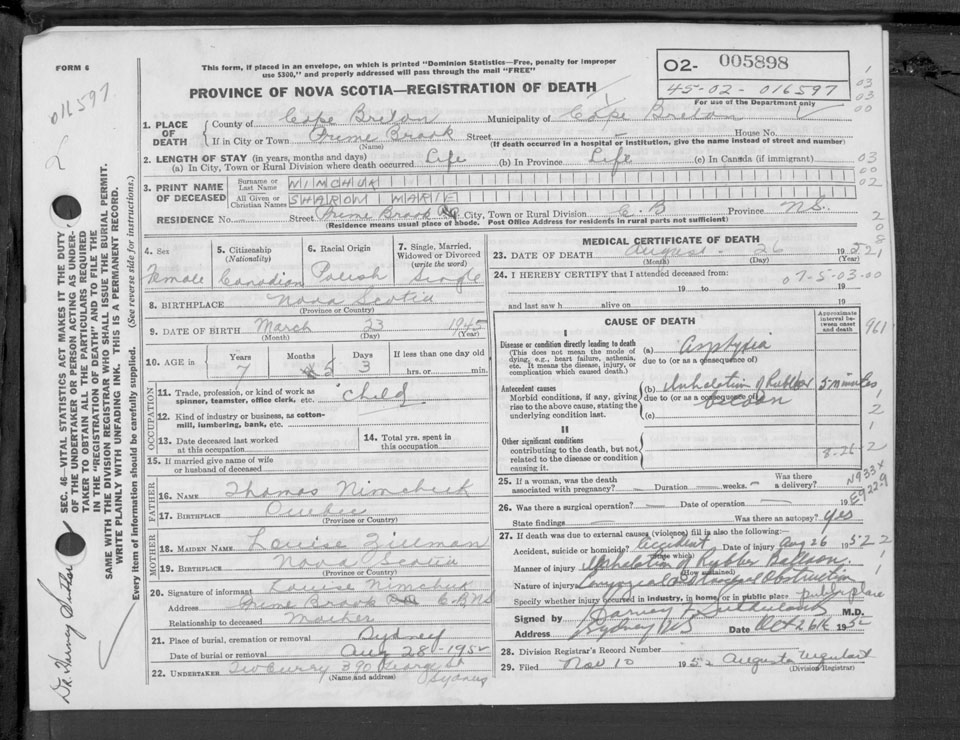 FORM 6
This form, if placed in an envelope, on which is printed "Dominion Statistics—Free, penalty for improper
use $300," and properly addressed will pass through the mail "FREE"
PROVINCE OF NOVA SCOTIA—REGISTRATION OF DEATH
O2- 005898
45-02-016597
For use of the Department only
016597
2
1. PLACE OF DEATH
County of Cape Breton Municipality of Cape Breton
If in City or Town Prime Brook Street - House No.
(Name) (If death occurred in a hospital or institution, give the name instead of street and number)
2. LENGTH OF STAY (in years, months and days)
(a) In City, Town or Rural Division where death occurred Life (b) In Province Life (c) In Canada (if immigrant)
3. PRINT NAME OF DECEASED
Surname or Last Name NIMCHUK
All Given or Christian Names SHARON MARIE
RESIDENCE No. Street Prime Brook City, Town or Rural Division C.B Province N.S.
(Residence means usual place of abode. Post Office Address for residents in rural parts not sufficient)
4. Sex Female
5. Citizenship (Nationality) Canadian
6. Racial Origin Polish
7. Single, Married, Widowed or Divorced (write the word) Single
8. BIRTHPLACE Nova Scotia
(Province or Country)
9. DATE OF BIRTH March 23 1945
(Month) (Day) (Year)
10. AGE in Years 7 Months 5 Days 3 If less than one day old hrs. or min.
OCCUPATION
11. Trade, profession, or kind of work as spinner, teamster, office clerk, etc. "child"
12. Kind of industry or business, as cotton-mill, lumbering, bank, etc.
13. Date deceased last worked at this occupation
14. Total yrs. spent in this occupation
15. If married give name of wife or husband of deceased
FATHER
16. NAME Thomas Nimchuk
17. BIRTHPLACE Quebec
(Province or Country)
MOTHER
18. MAIDEN NAME Louise Zillman
19. BIRTHPLACE Nova Scotia
(Province or Country)
20. Signature of informant Louise Nimchuk
Address Prime Brook C.B N.S
Relationship to deceased Mother
21. Place of burial, cremation or removal Sydney
Date of burial or removal Aug 28-1952
22. UNDERTAKER TW Curry 390 George St Sydney
(Name and address)
MEDICAL CERTIFICATE OF DEATH
23. DATE OF DEATH August - 26 1952
(Month) (Day) (Year)
24. I HEREBY CERTIFY that I attended deceased from:
07-5-03-00
19 to 19
and last saw h alive on 19
CAUSE OF DEATH
Approximate interval between onset and death
I
Disease or condition directly leading to death
(This does not mean the mode of dying, e.g., heart failure, asthenia, etc. It means the disease, injury, or complication which caused death.)
(a) Asphyxia
due to (or as a consequence of)
Antecedent causes
Morbid conditions, if any, giving rise to the above cause, stating the underlying condition last.
(b) Inhalation of Rubber Balloon 5 minutes
due to (or as a consequence of)
(c)
II
Other significant conditions
contributing to the death, but not related to the disease or condition causing it.
8-26-2
25. If a woman, was the death associated with pregnancy? Duration weeks. Was there a delivery?
N933x
E922.9
26. Was there a surgical operation? - Date of operation - 195
State findings Was there an autopsy? Yes
27. If death was due to external causes (violence) fill in also the following:
Accident, suicide or homicide? Accident Date of injury Aug 26 1952
(State which)
Manner of injury Inhalation of Rubber Balloon
(How sustained)
Nature of injury Laryngeal & Tracheal Obstruction
Specify whether injury occurred in industry, in home or in public place Public place
Signed by Harvey Sutherland M.D.
Address Sydney NS Date Oct 26th 1952
28. Division Registrar's Record Number
29. Filed Nov 10 1952 Augusta Urquhart
(Division Registrar)
SEC. 46—VITAL STATISTICS ACT MAKES IT THE DUTY
OF THE UNDERTAKER OR PERSON ACTING AS UNDER-
TAKER TO OBTAIN ALL THE PARTICULARS REQUIRED
IN THE "REGISTRATION OF DEATH" AND TO FILE THE
SAME WITH THE DIVISION REGISTRAR WHO SHALL ISSUE THE BURIAL PERMIT.
WRITE PLAINLY WITH UNFADING INK. THIS IS A PERMANENT RECORD.
Every item of information should be carefully supplied. (See reverse side for instructions.)
Dr. Harvey
1
03
03
00
03
00
02
2
0
8
2
1
961
1
2
1
2
1
1